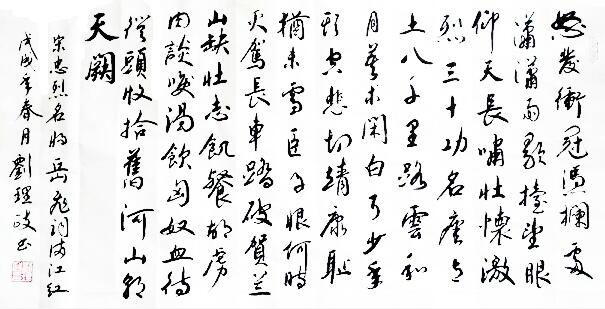 怒髮衝冠憑欄處
瀟瀟雨歇擡望眼
仰天長嘯壯懷激
烈三十功名塵與
土八千里路雲和
月莫等閑白了少年
頭空悲切靖康恥
猶未雪臣子恨何時
灭駕長車踏破賀蘭
山缺壯志飢餐胡虜
肉談笑渴飲匈奴血待
從頭收拾舊河山朝
天闕
宋忠烈名將岳飛詞滿江紅
戊戌年春月劉理政书